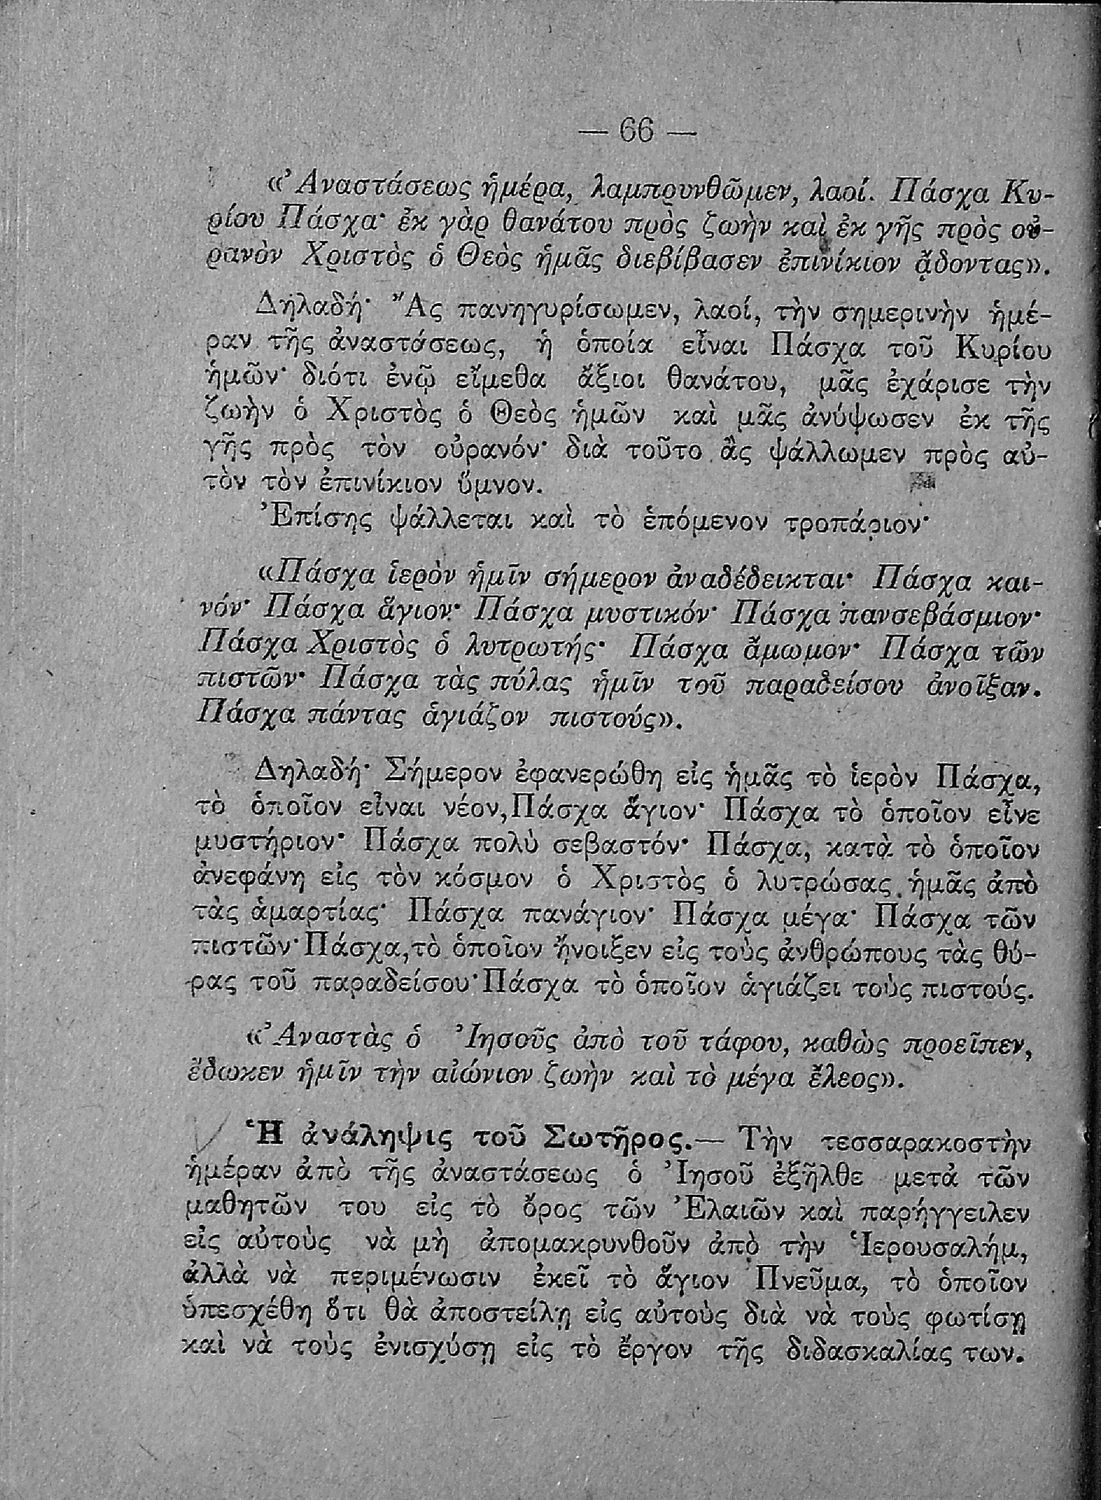 — 66 —
«Ἀναστάσεως ἡμέρα, λαμπρυνθῶμεν, λαοί. Πάσχα Κυ-
ρίου Πάσχα· ἐκ γὰρ θανάτου πρὸς ζωὴν καὶ ἐκ γῆς πρὸς οὐ-
ρανὸν Χριστὸς ὁ Θεὸς ἡμᾶς διεβίβασεν ἐπινίκιον ᾄδοντας».
Δηλαδή· Ἂς πανηγυρίσωμεν, λαοί, τὴν σημερινὴν ἡμέ-
ραν τῆς ἀναστάσεως, ἡ ὁποία εἶναι Πάσχα τοῦ Κυρίου
ἡμῶν· διότι ἐνῷ εἴμεθα ἄξιοι θανάτου, μᾶς ἐχάρισε τὴν
ζωὴν ὁ Χριστὸς ὁ Θεὸς ἡμῶν καὶ μᾶς ἀνύψωσεν ἐκ τῆς
γῆς πρὸς τὸν οὐρανόν· διὰ τοῦτο ἂς ψάλλωμεν πρὸς αὐ-
τὸν τὸν ἐπινίκιον ὕμνον.
Ἐπίσης ψάλλεται καὶ τὸ ἑπόμενον τροπάριον·
«Πάσχα ἱερὸν ἡμῖν σήμερον ἀναδέδεικται· Πάσχα και-
νόν· Πάσχα ἅγιον· Πάσχα μυστικόν· Πάσχα πανσεβάσμιον·
Πάσχα Χριστὸς ὁ λυτρωτής· Πάσχα ἄμωμον· Πάσχα τῶν
πιστῶν· Πάσχα τὰς πύλας ἡμῖν τοῦ παραδείσου ἀνοῖξαν.
Πάσχα πάντας ἁγιάζον πιστούς».
Δηλαδή· Σήμερον ἐφανερώθη εἰς ἡμᾶς τὸ ἱερὸν Πάσχα,
τὸ ὁποῖον εἶναι νέον, Πάσχα ἅγιον· Πάσχα τὸ ὁποῖον εἶνε
μυστήριον· Πάσχα πολὺ σεβαστόν· Πάσχα, κατὰ τὸ ὁποῖον
ἀνεφάνη εἰς τὸν κόσμον ὁ Χριστὸς ὁ λυτρώσας ἡμᾶς ἀπὸ
τὰς ἁμαρτίας· Πάσχα πανάγιον· Πάσχα μέγα· Πάσχα τῶν
πιστῶν· Πάσχα, τὸ ὁποῖον ἤνοιξεν εἰς τοὺς ἀνθρώπους τὰς θύ-
ρας τοῦ παραδείσου· Πάσχα τὸ ὁποῖον ἁγιάζει τοὺς πιστούς.
«Ἀναστὰς ὁ Ἰησοῦς ἀπὸ τοῦ τάφου, καθὼς προεῖπεν,
ἔδωκεν ἡμῖν τὴν αἰώνιον ζωὴν καὶ τὸ μέγα ἔλεος».
Ἡ ἀνάληψις τοῦ Σωτῆρος.— Τὴν τεσσαρακοστὴν
ἡμέραν ἀπὸ τῆς ἀναστάσεως ὁ Ἰησοῦ ἐξῆλθε μετὰ τῶν
μαθητῶν του εἰς τὸ ὄρος τῶν Ἐλαιῶν καὶ παρήγγειλεν
εἰς αὐτοὺς νὰ μὴ ἀπομακρυνθοῦν ἀπὸ τὴν Ἱερουσαλήμ,
ἀλλὰ νὰ περιμένωσιν ἐκεῖ τὸ ἅγιον Πνεῦμα, τὸ ὁποῖον
ὑπεσχέθη ὅτι θὰ ἀποστείλῃ εἰς αὐτοὺς διὰ νὰ τοὺς φωτίσῃ
καὶ νὰ τοὺς ἐνισχύσῃ εἰς τὸ ἔργον τῆς διδασκαλίας των.